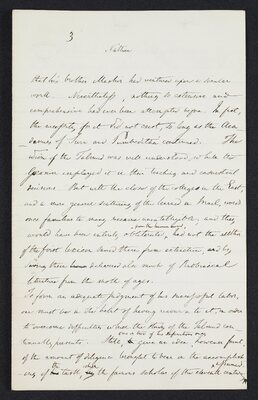 3
Nathan
that his brother Machir had ventured upon a similar
work. Nevertheless, nothing so extensive and
comprehensive had ever been attempted before. In fact,
the necessity for it did not exist, so long as the Aca-
demies of Sura and Pumbeditha continued. The
idiom of the Talmud was well understood, while the
Geonim employed it in their teaching and
decisions. But with the close of the colleges in the East,
and a more general scattering of the learned in Israel, words
once familiar to many became unintelligible, and they
would have been entirely obliterated, had not the author
of the first lexicon saved them from extinction, and by
saving them delivered also much of Rabbinical
literature from the moth of ages.
To form an adequate judgment of his masterful labor,
one must be in the habit of having recourse to it, in order
to overcome difficulties which the study of the Talmud con-
tinually presents. Still, to give an idea, however faint,
of the amount of diligence brought to bear in the accomplish-
ing of the task, the famous scholar of the eleventh century